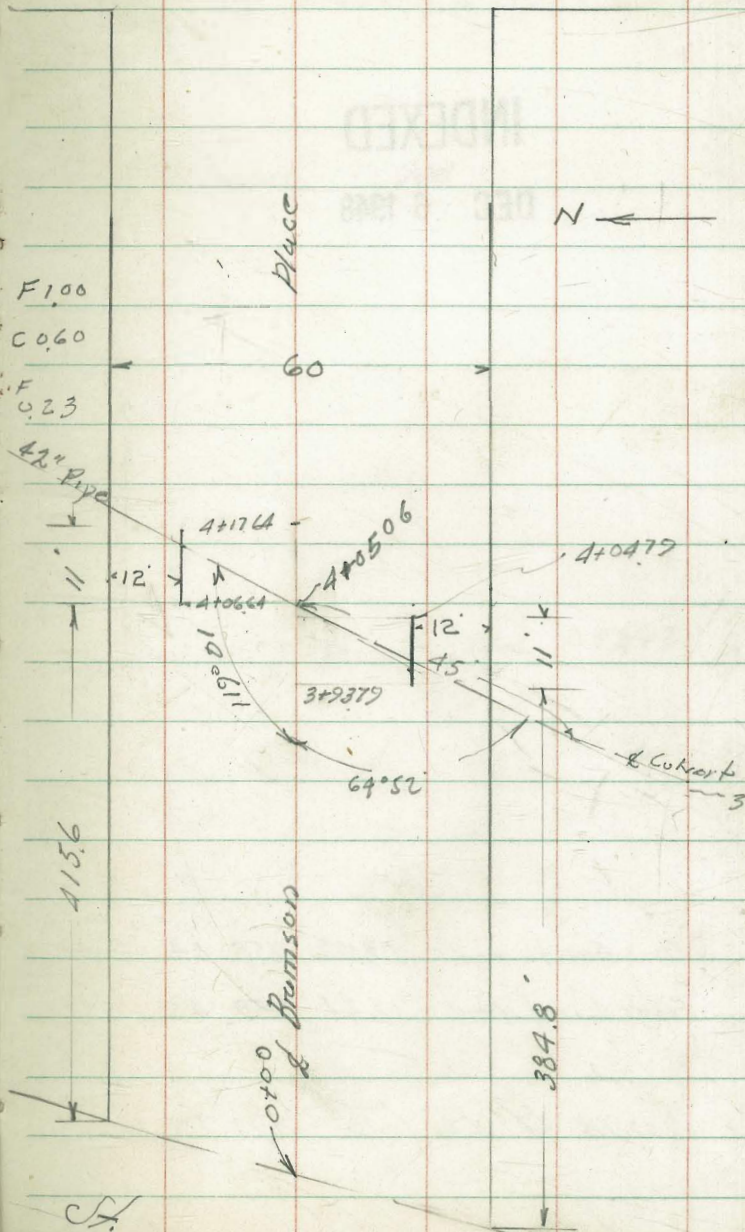 INDEXED
DEC 6 1948
N
Place
F 1.00
C 0.60
F 0.23
60
42" Pipe
4+1764
4+0506
4+0479
11'
12'
4+0664
12'
45
11'
119°01
3+9379
64°52'
℄ Culvert
3
415.6
℄ Brunson
384.8'
0+00
St.